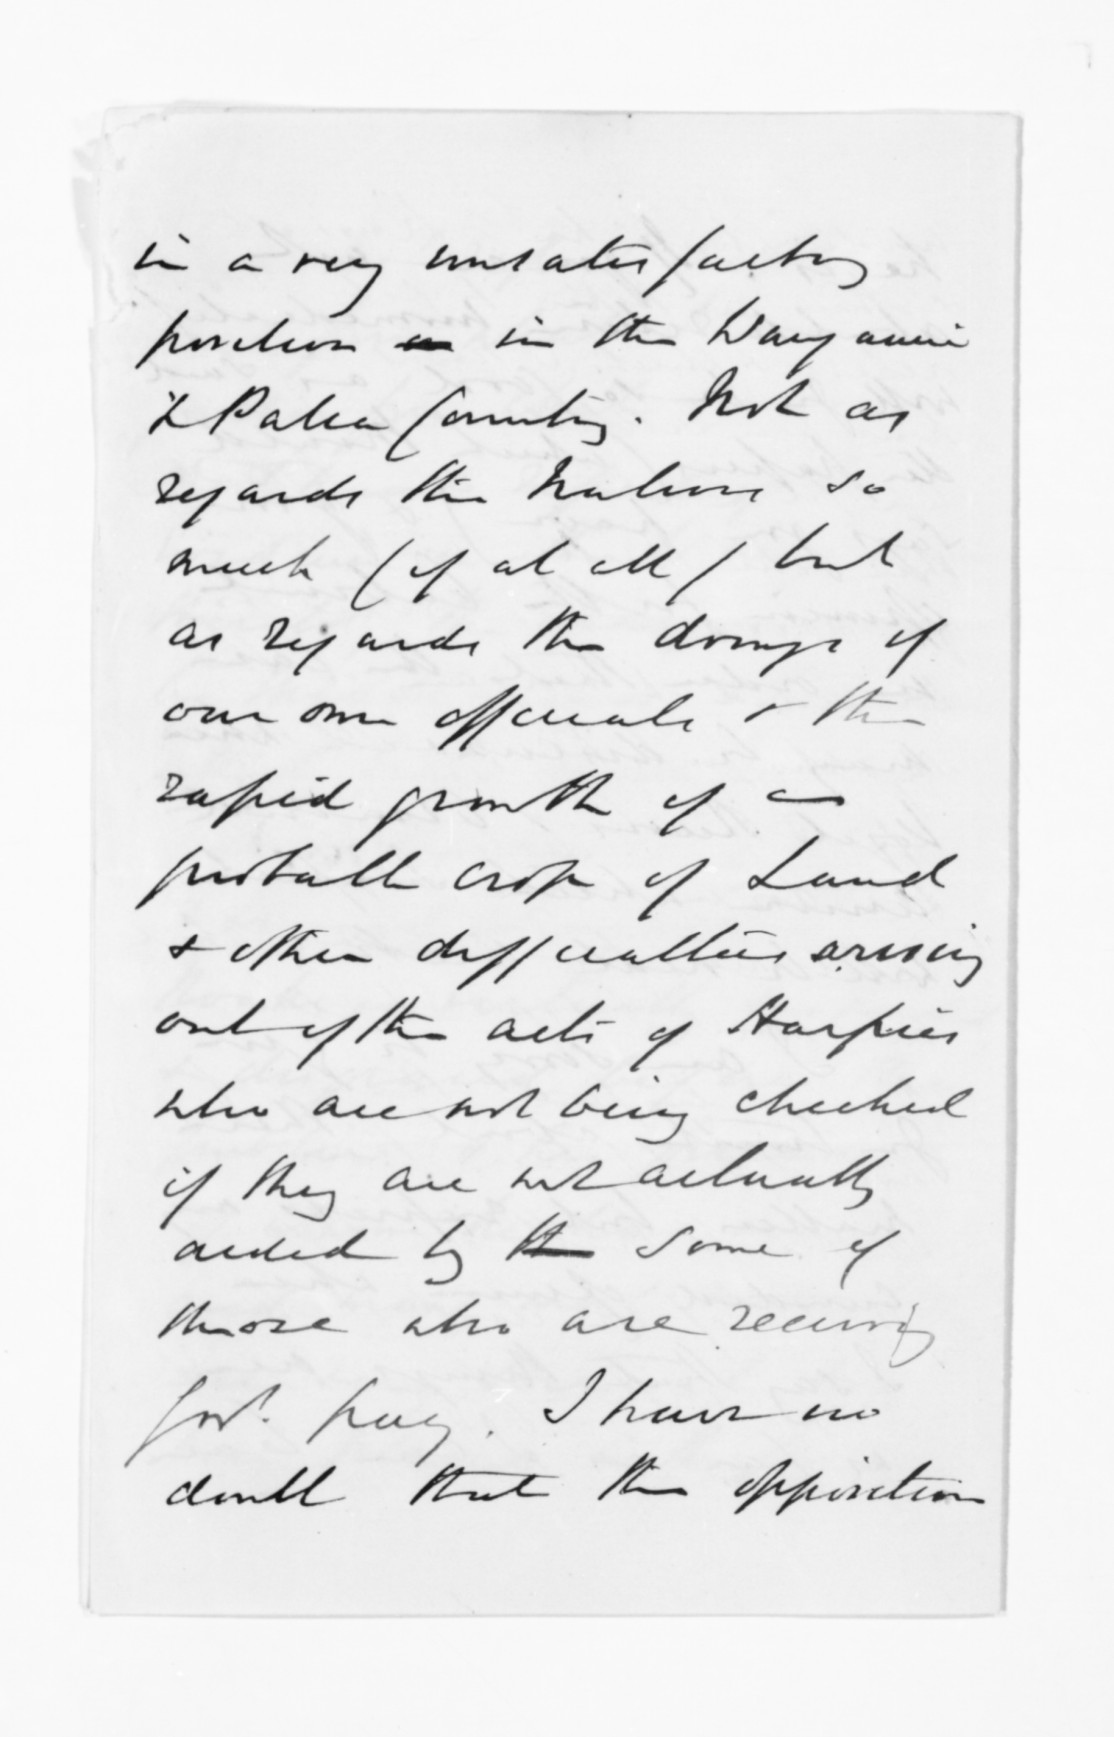 in a very unsatisfactory
position in the Wanganui
& Patea Country. Not as
regards the Natives so
much (if at all) but
as regards the doings of
our own officials & the
rapid growth of a
probable crop of Land
& other difficulties arising
out of the acts of Harpies
who are not being checked
if they are not actually
aided by some of
those who are receiving
Govt. pay. I have no
doubt that the opposition